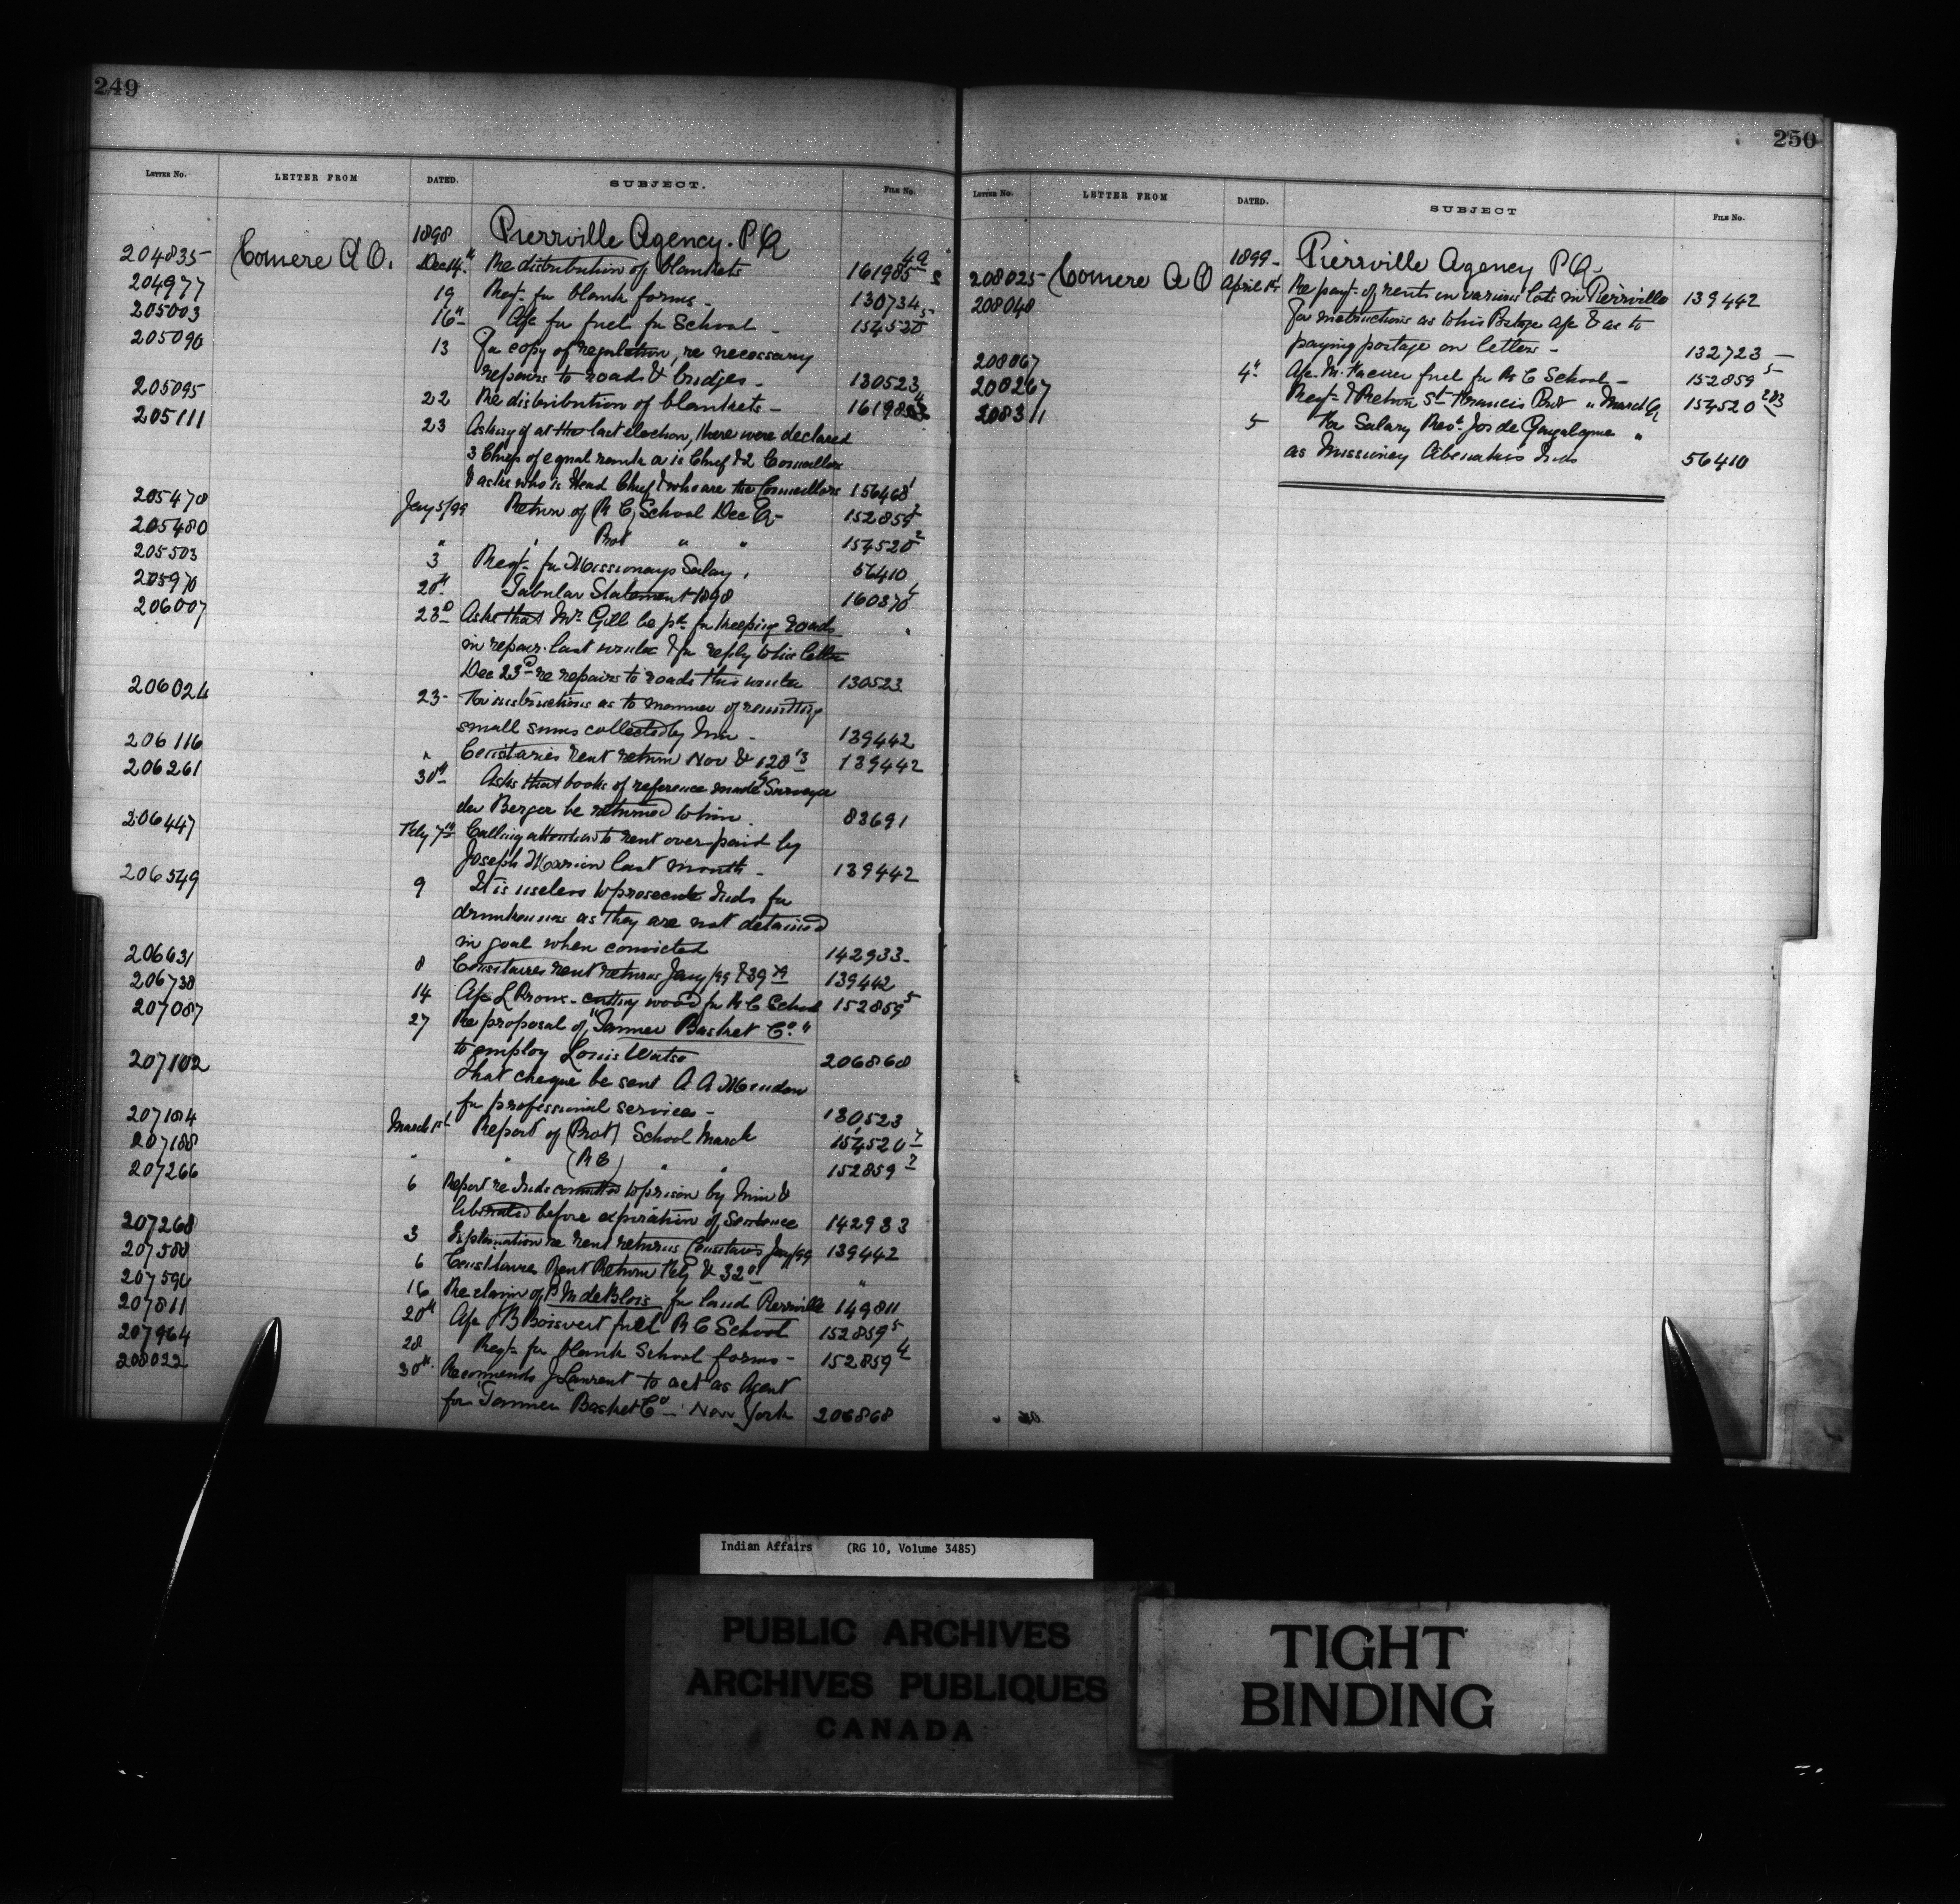 249
LETTER No. LETTER FROM DATED. SUBJECT. FILE No.
1898 Pierrville Agency. P Q
204835 Comere A O. Dec 14" Re distribution of blankets 161985
204977 19 Reqt. for blank forms - 130734
205003 16" A/c for fuel for School - 154520
205090 13 For copy of regulation, re necessary
repairs to roads & bridges - 130523
205095 22 Re distribution of blankets -
205111 23 Asking if at the last election, there were declared
3 Chiefs of equal rank or is Chief & 2 Councillors
& asks who is Head Chief & who are the Councillors 156468
205470 Jany 5/99 Return of (R C) School Dec Q - 152859
205480 " Prot " " 154520
205503 3 Reqt. for Missionarys Salary. 56410
205970 20th Tabular Statement 1898 160370
206007 23d Asks that Mr Gill be pd. for keeping roads
in repair last winter & for reply to his letter
Dec 23d re repairs to roads this winter 130523
206024 23 - For instructions as to manner of remitting
small sums collected by him - 139442
206116 " Censtaries rent return Nov & 139442
206261 30th Asks that books of reference made by Surveyor
der Berger be returned to him. 83691
206447 Feby 7th Calling attention to rent overpaid by
Joseph Marrion last month - 139442
206549 9 It is useless to prosecute Inds for
drunkenness as they are not detained
in goal when convicted 142933 -
206631 8 Censtaires rent returns Jany/99 139442
206738 14 A/c L Proux - cutting wood for R C School 152859 5
207087 27 Re proposal of "Tanner Basket Co."
to employ Louis Watso 206868
207102 That cheque be sent A A Mondou
for professional services - 130523
207184 March 1st Report of (Prot) School March 154520 7
207188 " " (R C) " " 152859 7
207266 6 Report re Inds committed to prison by him &
liberated before expiration of Sentence 142933
207268 3 Explanation re rent returns Censtaires Jany/99 139442
207580 6 Censtaires Rent Return Feby & "
207594 16 Re claim of P M de Blois for land Pierrville 149811
207811 20th A/c J B Boisvert fuel R C School 152859 5
207964 28 Reqt. for blank School forms - 152859 4
208022 30th. Recommends J Laurent to act as Agent
for "Tanner Basket Co - New York 206868
250
LETTER No. LETTER FROM DATED. SUBJECT FILE No.
1899 - Pierrville Agency P Q -
208025 Comere A O April 1st Re payt. of rents on various lots in Pierrville 139442
208048 For instructions as to his Postage a/c & as to
paying postage on letters - 132723 -
208067 4" A/c M. fuel for R C School - 152859 5
208267 Reqt. & Return St Francis Prot " March Q 154520
208311 5 For Salary Revd. Jos de Gonzalegue "
as Missionary Abenakis Inds 56410
Indian Affairs (RG 10, Volume 3485)
PUBLIC ARCHIVES
ARCHIVES PUBLIQUES
CANADA
TIGHT
BINDING